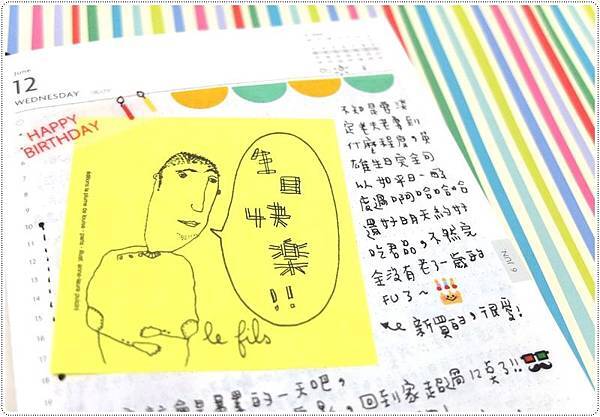 June
12
WEDNESDAY
HAPPY
BIRTHDAY
生日
快樂
!!
le fils
不知是
老夫老妻到
什麼程度，英
雄生日完全可
以如平日一般
度過啊哈哈哈
還好明天約好
吃君品，不然完
全沒有老了一歲的
FU了~
新買的，很愛!
的一天吧，
回到家超過12點了!!
10
11
12
13
14
15
16
17
18
19